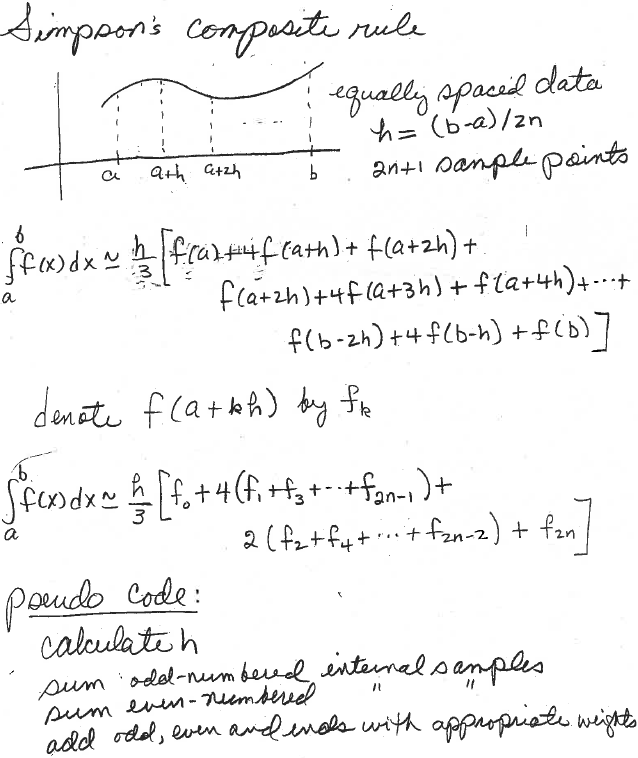 Simpson's composite rule
equally spaced data
h = (b-a)/2n
2n+1 sample points
a a+h a+2h b
∫_a^b f(x)dx ≃ h/3 [f(a)+4f(a+h)+f(a+2h)+
f(a+2h)+4f(a+3h)+f(a+4h)+···+
f(b-2h)+4f(b-h)+f(b)]
denote f(a+kh) by f_k
∫_a^b f(x)dx ≃ h/3 [f_0+4(f_1+f_3+··+f_{2n-1})+
2(f_2+f_4+···+f_{2n-2})+f_{2n}]
pseudo code:
calculate h
sum odd-numbered internal samples
sum even-numbered " "
add odd, even and ends with appropriate weights